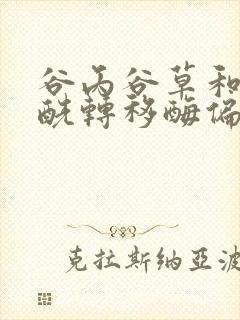 谷丙谷草和
酰转移酶偏
克拉斯纳亚波